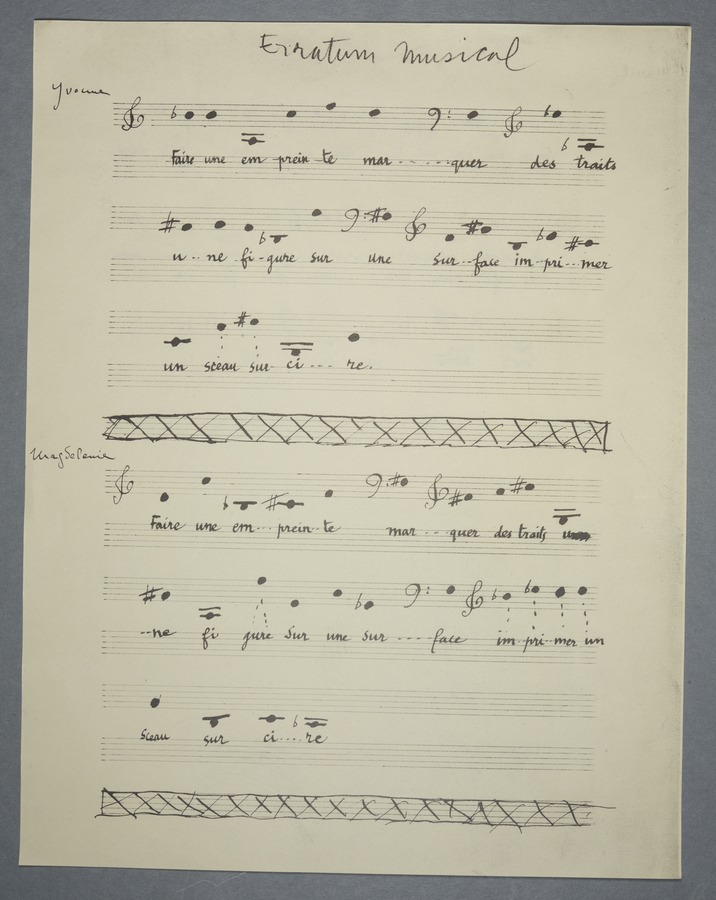 Erratum Musical
Yvonne
Faire une em prein te mar - - - - - quer des traits
u - - ne fi - gure sur une sur - - face im - pri - - mer
un sceau sur ci - - - re.
Magdeleine
Faire une em - - prein - te mar - - quer des traits u
- - ne fi gure sur une sur - - - - face im - pri - mer un
sceau sur ci - - - - re